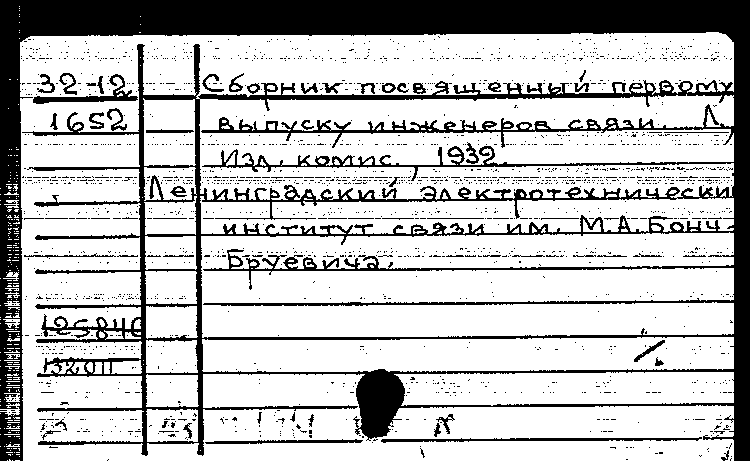 32-12 Сборник посвященный первому
1652 выпуску инженеров связи. Л.,
Изд. комис., 1932.
Ленинградский электротехнически
институт связи им. М.А. Бонч-
Бруевича.
125840
132011